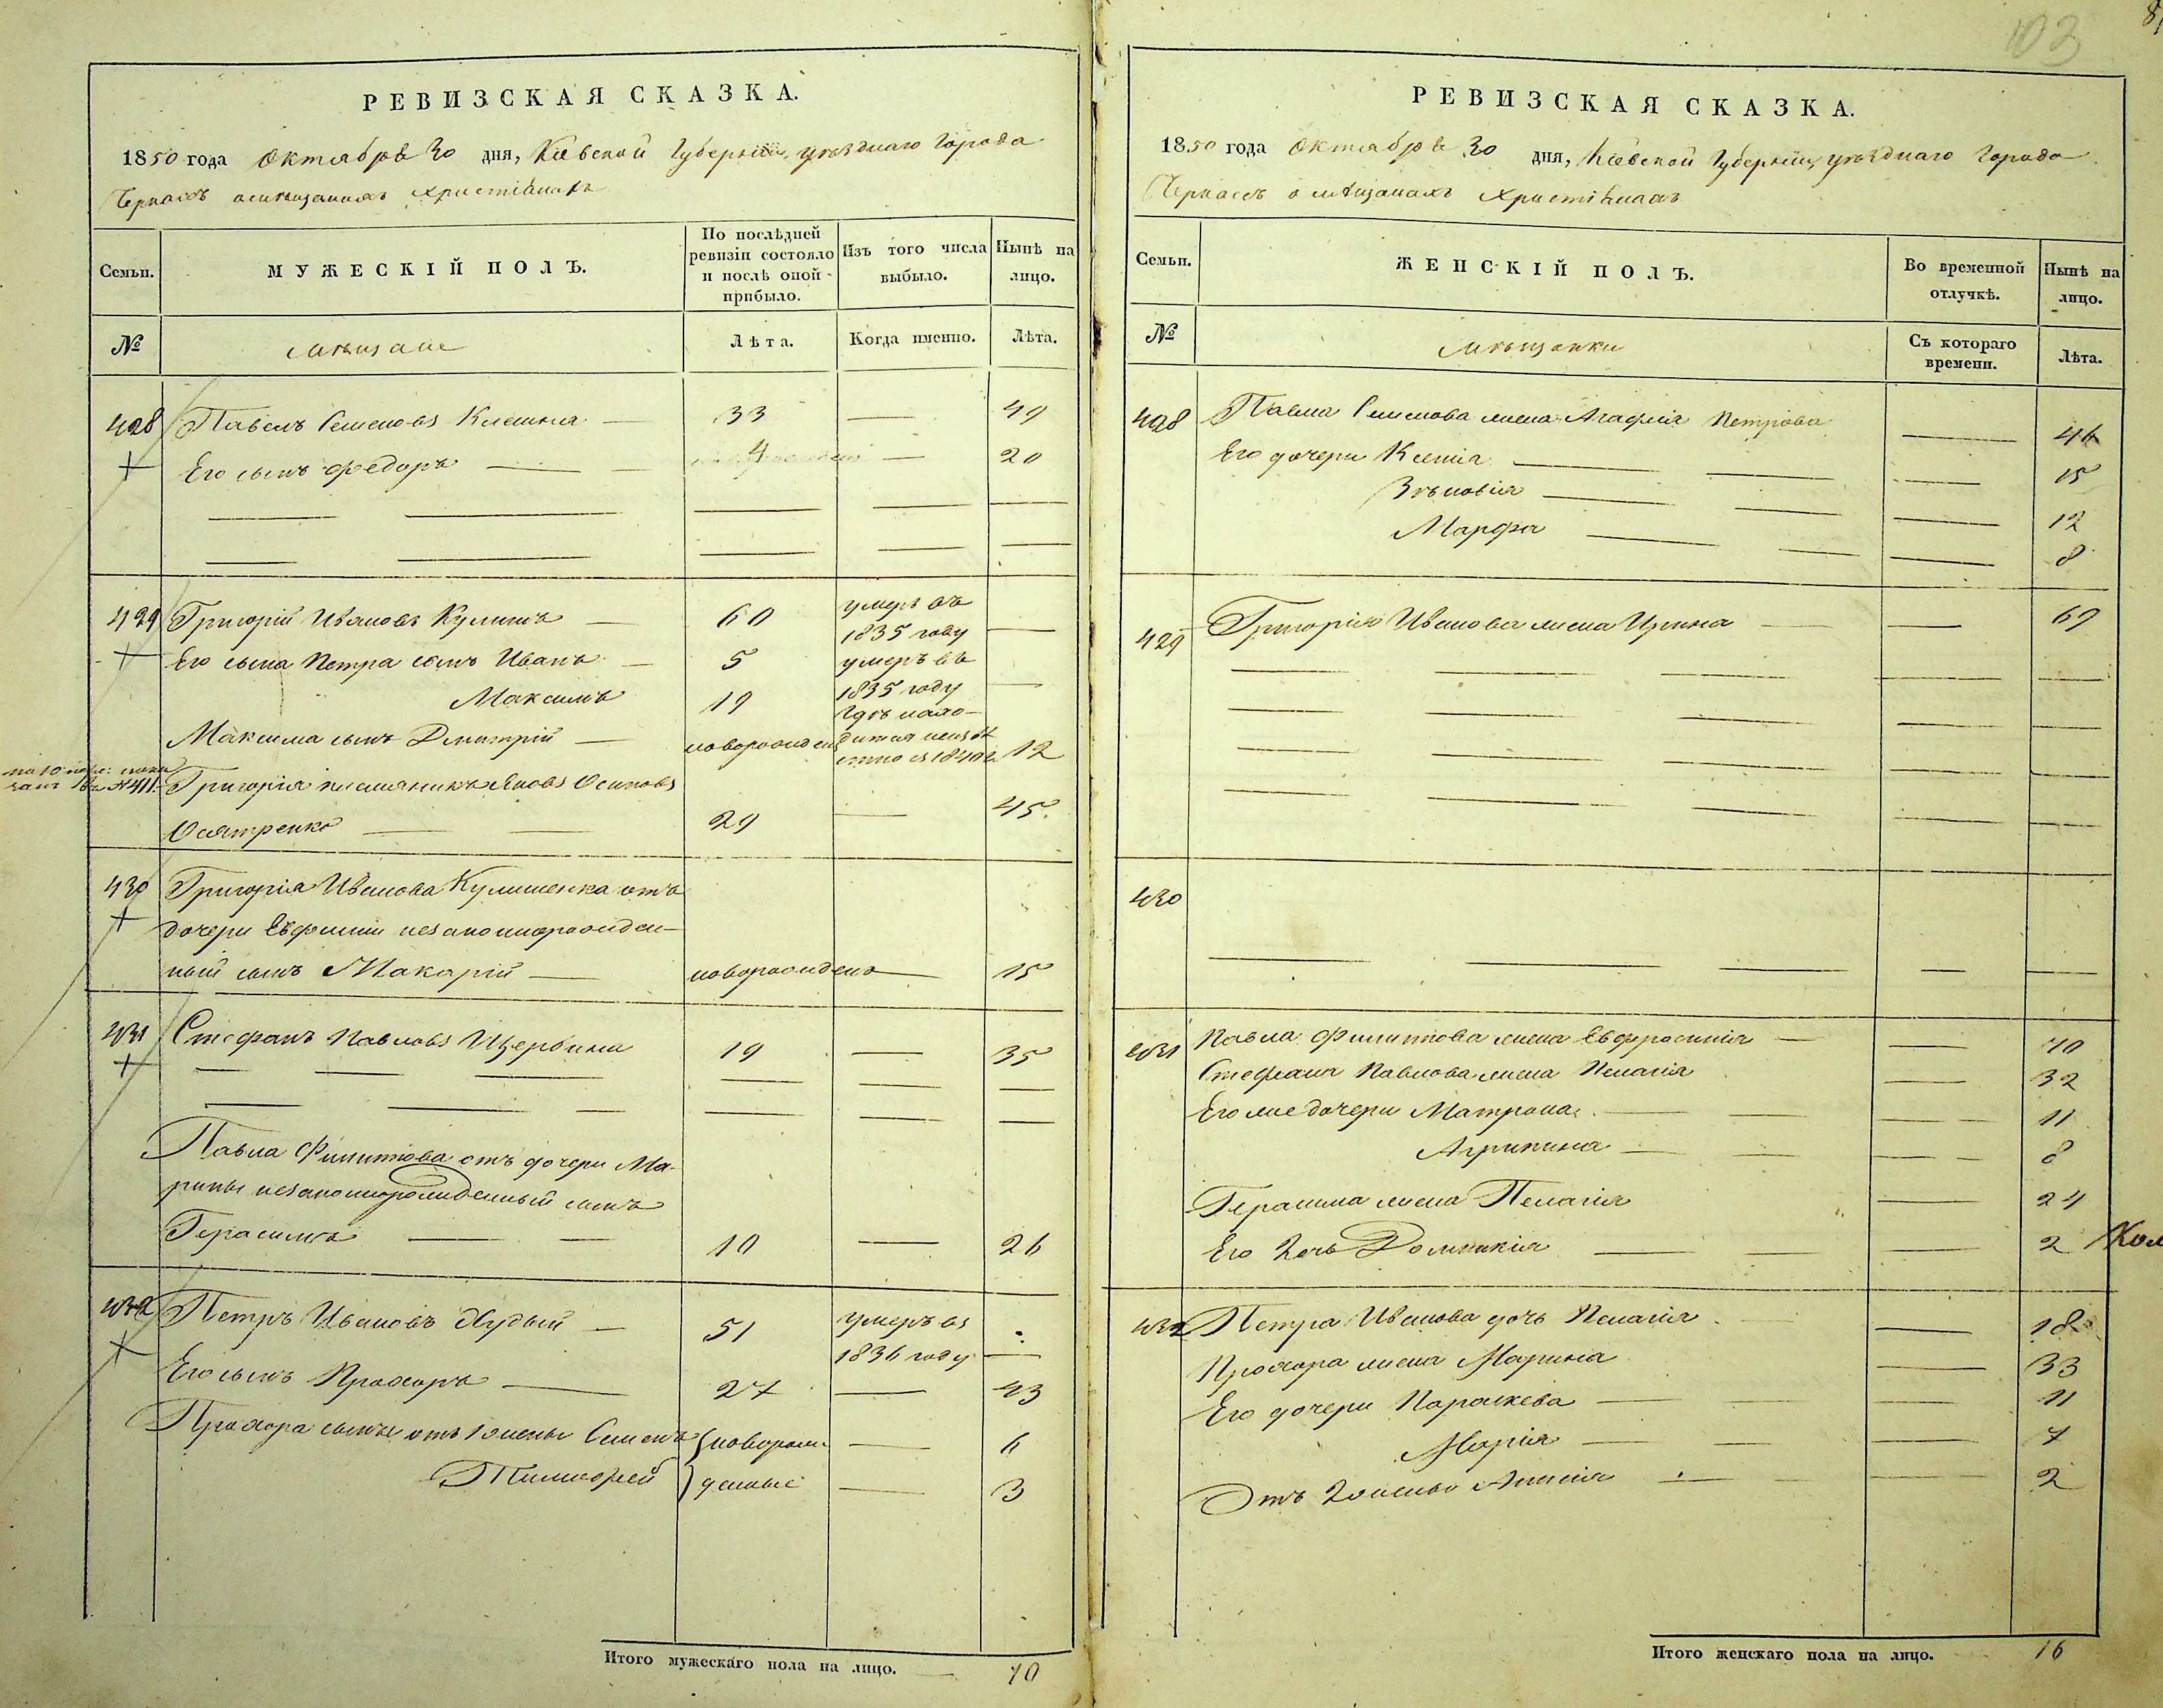 103
РЕВИЗСКАЯ СКАЗКА.
1850 года Октября 30 дня, Кіевской Губерніи, уѣзднаго Города
Черкасъ о мѣщанахъ христіанахъ
Семьи.
МУЖЕСКІЙ ПОЛЪ.
По послѣдней ревизіи состояло и послѣ оной прибыло.
Изъ того числа выбыло.
Нынѣ на лицо.
№
мѣщане
Лѣта.
Когда именно.
Лѣта.
428 Павелъ Семеновъ — 33 — 49
Его сынъ Федоръ — 4 — 20
429 Григорій Ивановъ Кулишъ — 60 умеръ въ 1835 году —
Его сына Петра сынъ Иванъ — 5 умеръ въ 1835 году —
Максимъ 19 Гдѣ нахо-
Максима сынъ Дмитрій — новорожден дится неизвѣстно съ 1840 г. 12
№ 411
Григорія племянникъ Яковъ Осиповъ
29 — 45
430 Григорія Иванова Кулишенка отъ
дочери Евфиміи незаконнорожден-
ный сынъ Макарій — новорожденъ — 15
431 Стефанъ Павловъ Щербина 19 — 35
Павла Филиппова отъ дочери Ма-
рины незаконнорожденный сынъ
Герасимъ — 10 — 26
432 Петръ Ивановъ Худый — 51 умеръ въ 1836 году —
Его сынъ Прохоръ — 27 — 43
Прохора сыны отъ 1 жены Семенъ } новорож- — 6
Тимофей } денные — 3
Итого мужескаго пола на лицо. — 10
РЕВИЗСКАЯ СКАЗКА.
1850 года Октября 30 дня, Кіевской Губерніи, уѣзднаго Города
Черкасъ о мѣщанахъ Христіанахъ
Семьи.
ЖЕНСКІЙ ПОЛЪ.
Во временной отлучкѣ.
Нынѣ на лицо.
№
мѣщанки
Съ котораго времени.
Лѣта.
428 Павла Семенова жена Агафія Петрова — 46
Его дочери Ксенія — 15
Зѣновія — 12
Марфа — 8
429 Григорія Иванова жена Ирина — 69
430
431 Павла Филиппова жена Евфросинія — 70
Стефана Павлова жена Пелагія — 32
Его же дочери Матрона — 11
Агрипина — 8
Герасима жена Пелагія — 24
Его дочь Домникія — 2
432 Петра Иванова дочь Пелагія — 18
Прохора жена Марина — 33
Его дочери Параскева — 11
Марія — 7
Отъ 2 жены Анисія — 2
Итого женскаго пола на лицо. 16